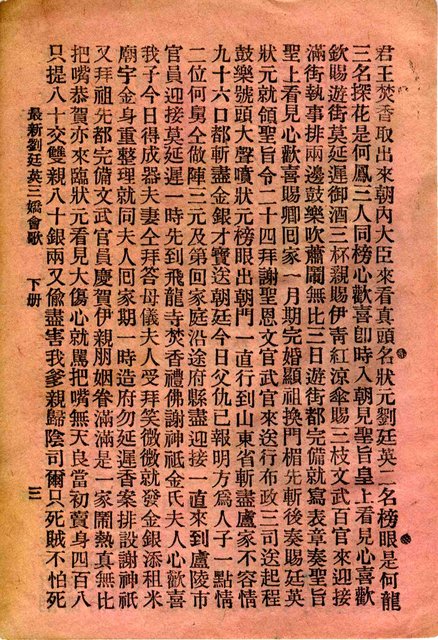 君王焚香取出來朝內大臣來看真頭名狀元劉廷英二名榜眼是何龍
三名探花是何鳳三人同榜心歡喜卽時入朝見聖旨皇上看見心喜歡
欽賜遊街莫延遲御酒三杯親賜伊靑紅涼傘賜三枝文武百官來迎接
滿街執事排兩邊鼓樂吹蕭鬧無比三日遊街都完備就寫表章奏聖旨
聖上看見心歡喜賜卿囘家一月期完婚顯祖換門楣先斬後奏賜廷英
狀元就領聖旨令二十四拜謝聖恩文官武官來送行布政三司送起程
鼓樂號頭大聲噴狀元榜眼出朝門一直行到山東省斬盡盧家不容情
九十六口都斬盡金銀才寶送朝廷今日父仇已報明方爲人子一點情
二位何舅仝做陣三元及第囘家庭沿途府縣盡迎接一直來到盧陵市
官員迎接莫延遲一時先到飛龍寺焚香禮佛謝神祇金氏夫人心歡喜
我子今日得成器夫妻仝拜答母儀夫人受拜笑微微就發金銀添租米
廟宇金身重整理就同夫人囘家期一時造府勿延遲香案排設謝神祇
又拜祖先都完備文武官員慶賀伊親朋姻眷滿滿是一家鬧熱真無比
把嘴恭賀亦來臨狀元看見大傷心就罵把嘴無天良當初賣身四百八
只提八十交雙親八十銀兩又偸盡害我爹親歸陰司爾只死賊不怕死
最新劉廷英三嬌會歌 下册 三